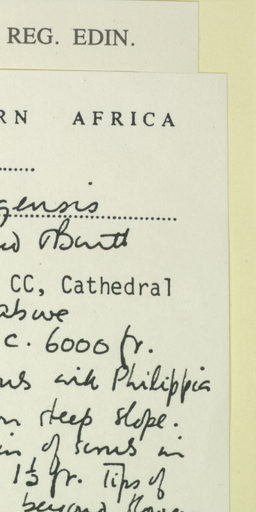 REG. EDIN.
RN AFRICA
gensis
Burtt
CC, Cathedral
above
c. 6000 ft.
with Philippia
on steep slope.
of scrub in
1½ ft. Tips of
beyond